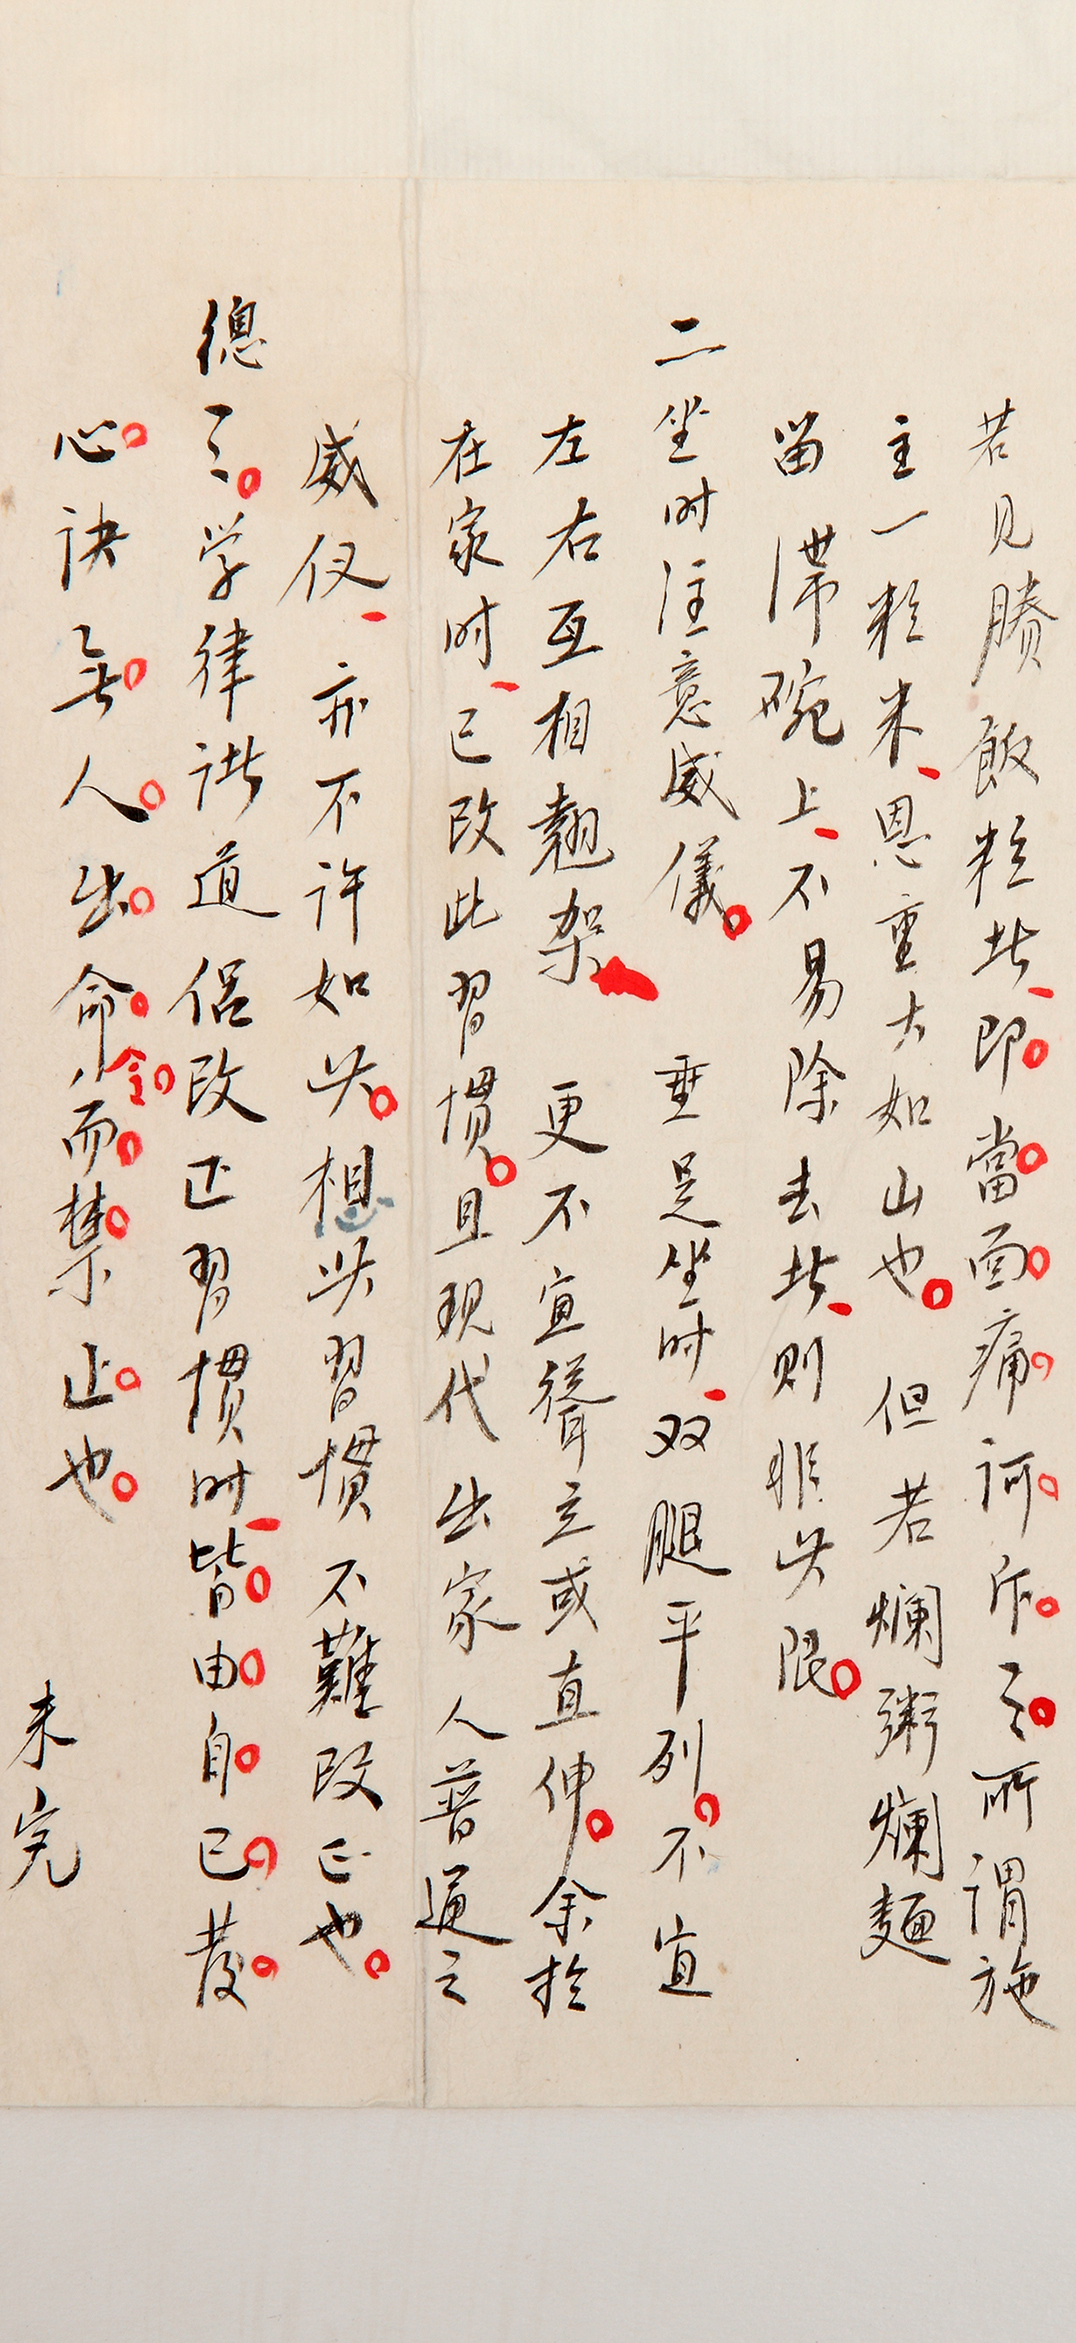 若見賸飯粒者、即當面痛訶斥之。所謂施
主一粒米、恩重大如山也。但若爛粥爛麵
留滯碗上、不易除去者、則非此限。
二坐时注意威儀。垂足坐时、双腿平列。不宜
左右互相翹架、更不宜聳立或直伸。余於
在家时、已改此習慣。且現代出家人普通之
威仪、亦不許如此。想此習慣不難改正也。
總之。学律諸道侣改正習慣时、皆由自己發
心。決無人出命令而禁止也。
未完